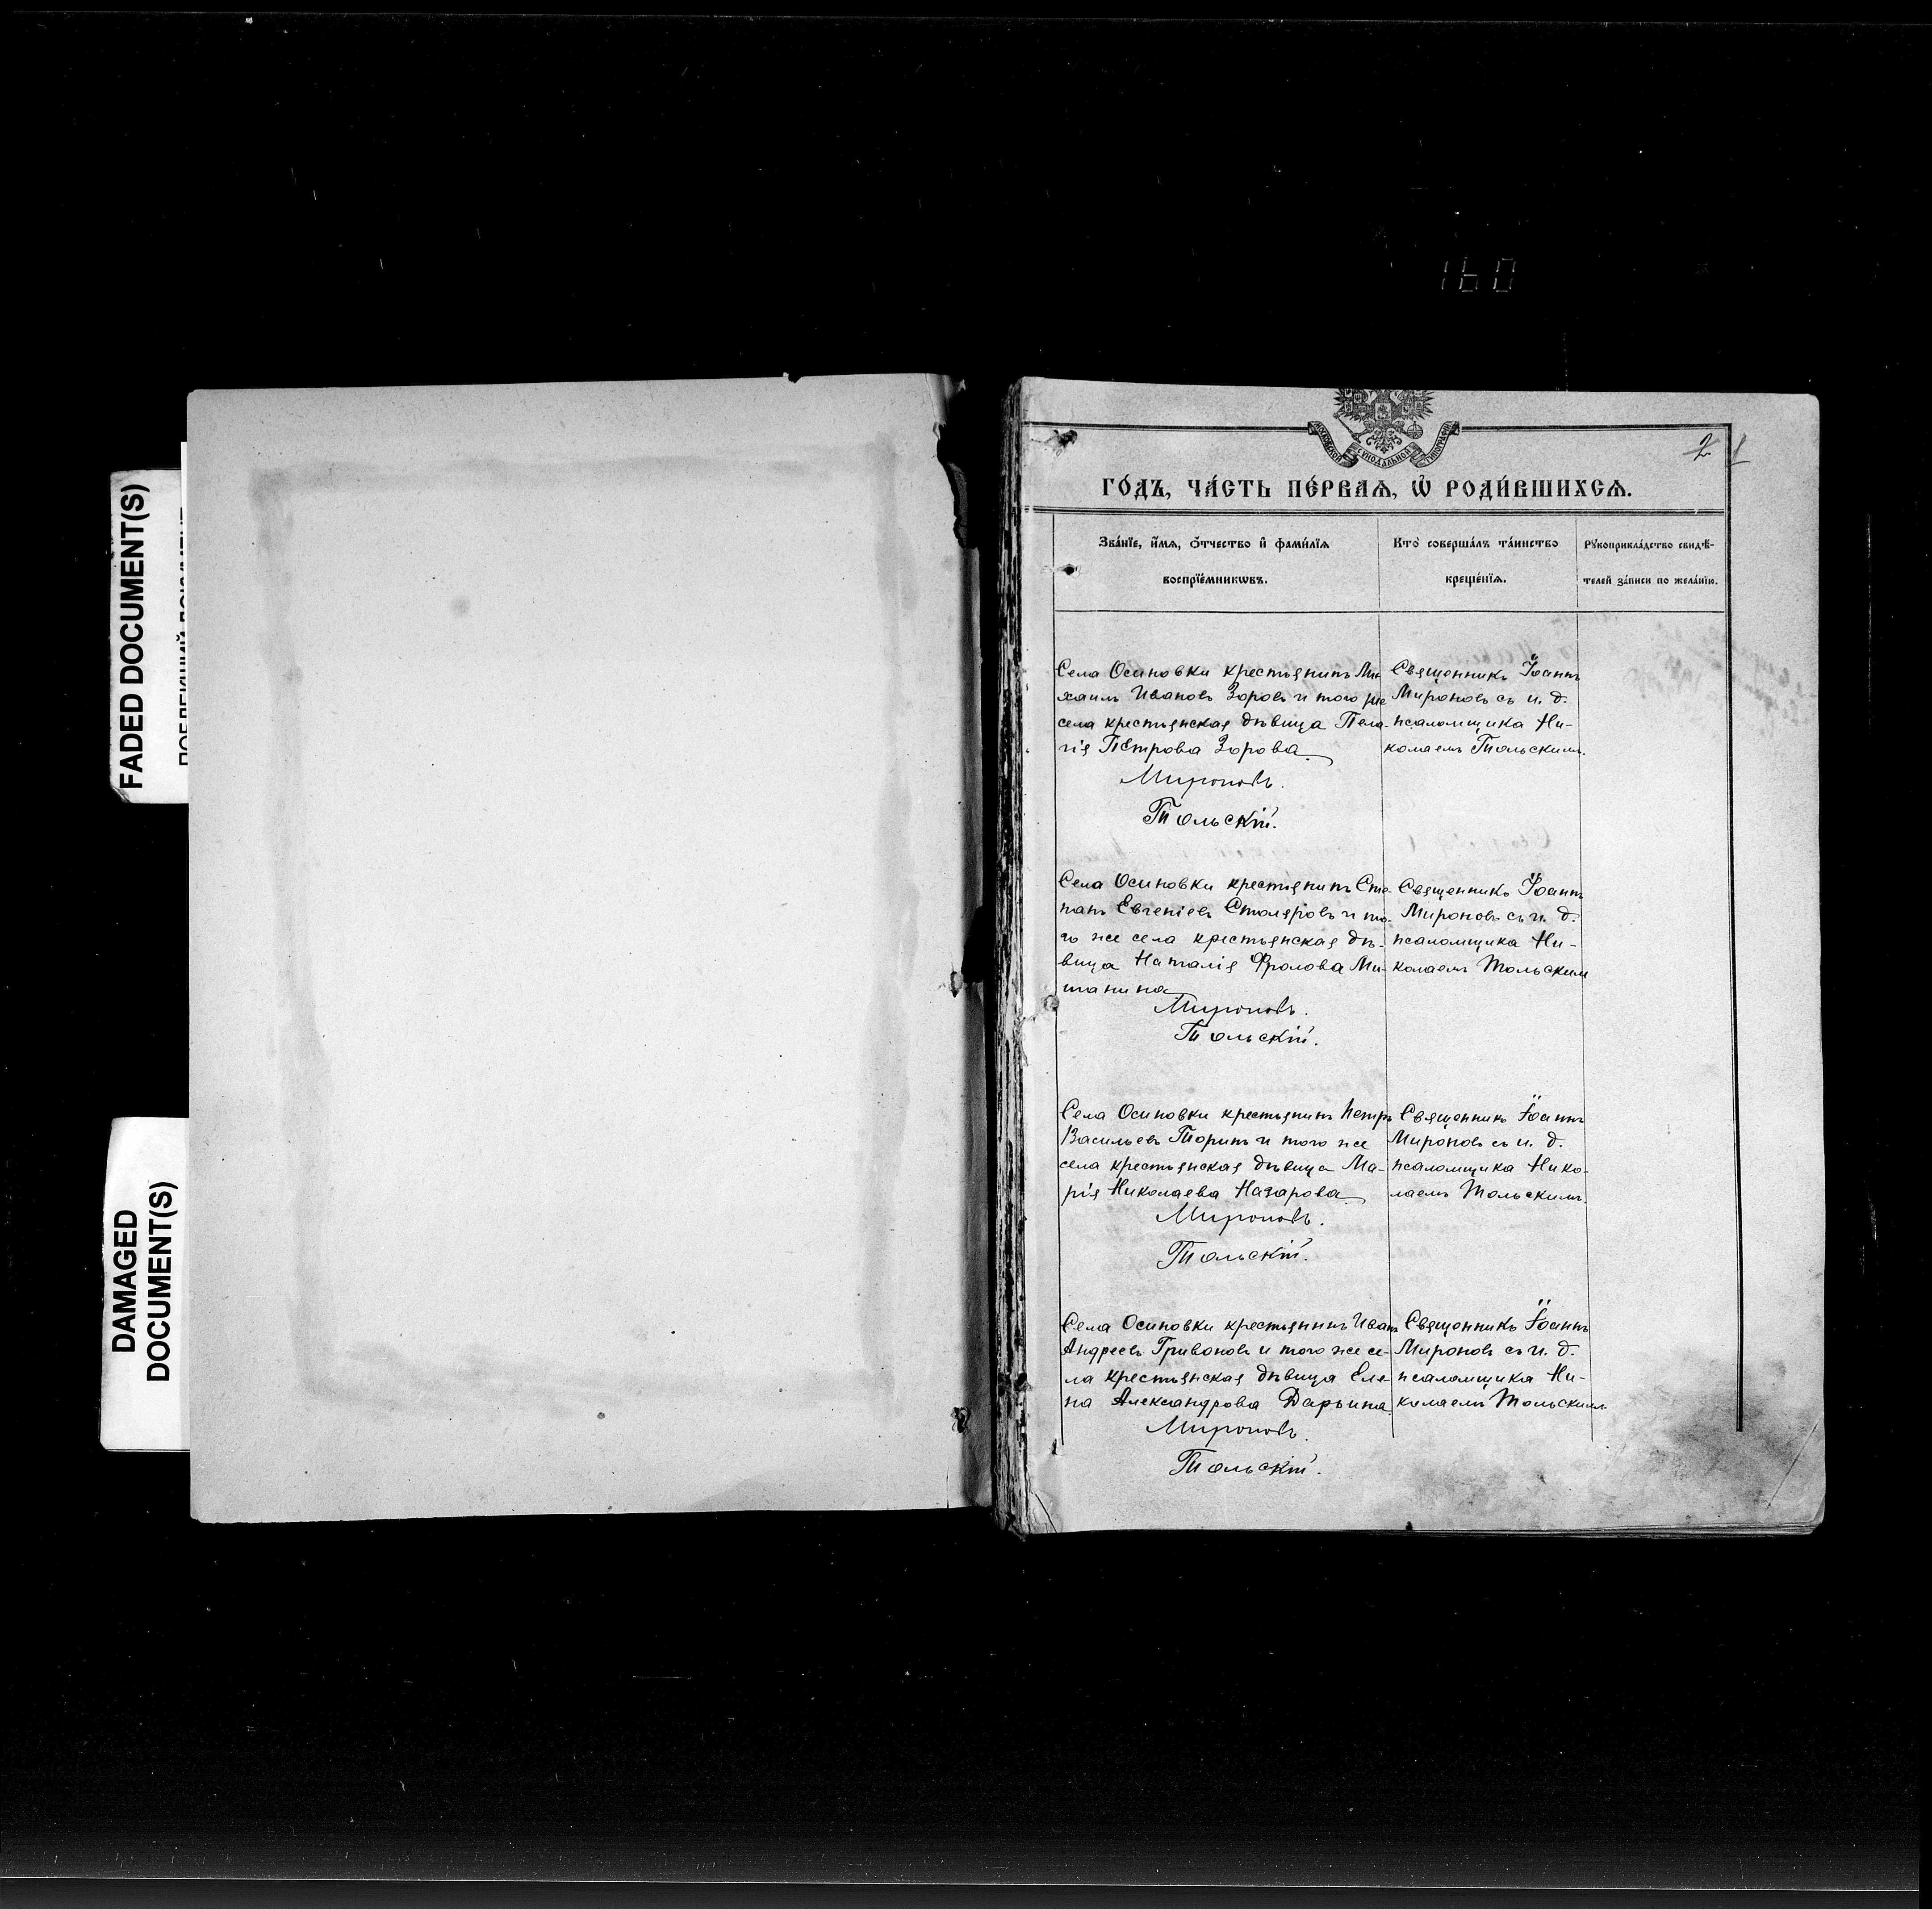 160
FADED DOCUMENT(S)
DAMAGED
DOCUMENT(S)
2 1
МОСКОВСКОЙ СѴНОДАЛЬНОЙ ТИПОГРАФІИ
ГО́ДЪ, ЧА́СТЬ ПЕ́РВАѦ, Ѡ҆ РОДИ́ВШИХСѦ.
Зва́нїе, и҆́мѧ, ѻ҆́тчество и҆ фами́лїѧ
воспрїе́мникѡвъ.
Кто̀ соверша́лъ та́инство
креще́нїѧ.
Рꙋкоприкла́дство свидѣ́-
телей за́писи по жела́нїю.
Села Осиновки крестьянинъ Ми-
хаилъ Ивановъ Зоровъ и того же
села крестьянская дѣвица Пела-
гія Петрова Зорова.
Мироновъ.
Тольскій.
Священникъ Іоаннъ
Мироновъ съ и. д.
псаломщика Ни-
колаемъ Тольскимъ.
Села Осиновки крестьянинъ Сте-
панъ Евгеніевъ Столяровъ и то-
го же села крестьянская дѣ-
вица Наталія Фролова Ми-
шанина
Мироновъ.
Тольскій.
Священникъ Іоаннъ
Мироновъ съ и. д.
псаломщика Ни-
колаемъ Тольскимъ
Села Осиновки крестьянинъ Петръ
Васильевъ Торинъ и того же
села крестьянская дѣвица Ма-
рія Николаева Назарова
Мироновъ.
Тольскій.
Священникъ Іоаннъ
Мироновъ съ и. д.
псаломщика Нико-
лаемъ Тольскимъ.
Села Осиновки крестьянинъ Иванъ
Андреевъ Гривоновъ и того же се-
ла крестьянская дѣвица Еле-
на Александрова Дарьина
Мироновъ.
Тольскій.
Священникъ Іоаннъ
Мироновъ съ и. д.
псаломщика Ни-
колаемъ Тольскимъ